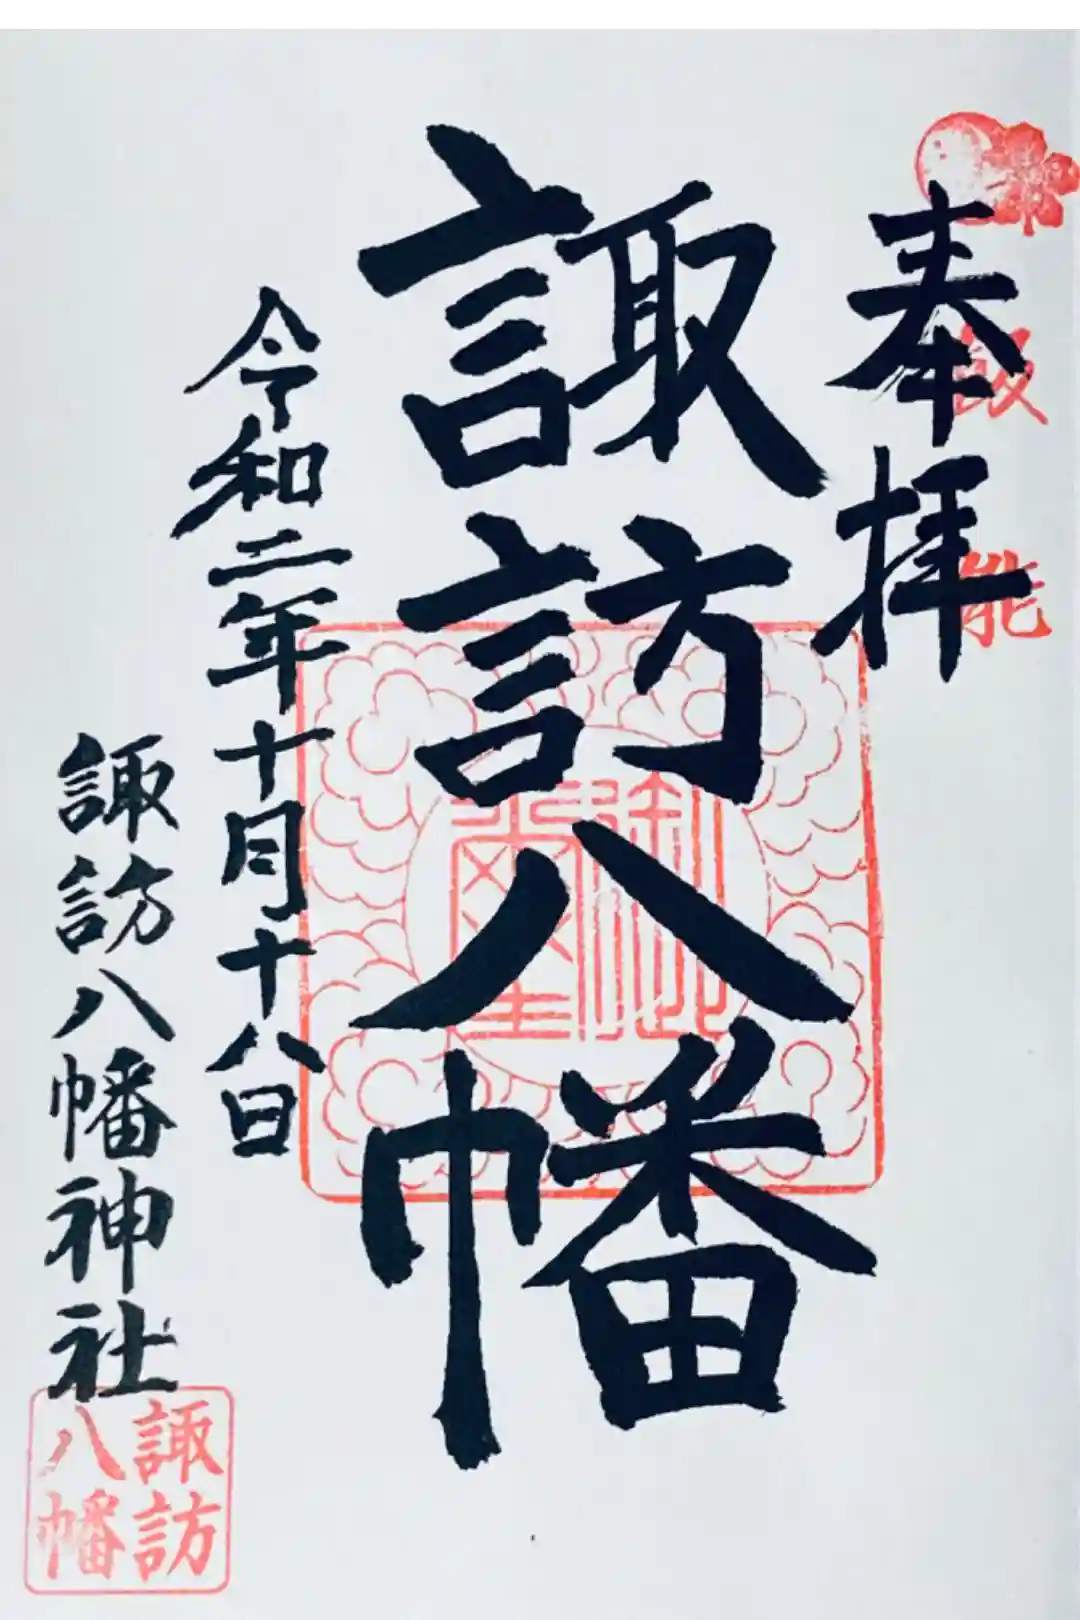 奉拝
飯能
諏訪八幡
令和二年十月十八日
諏訪八幡神社
諏訪
八幡